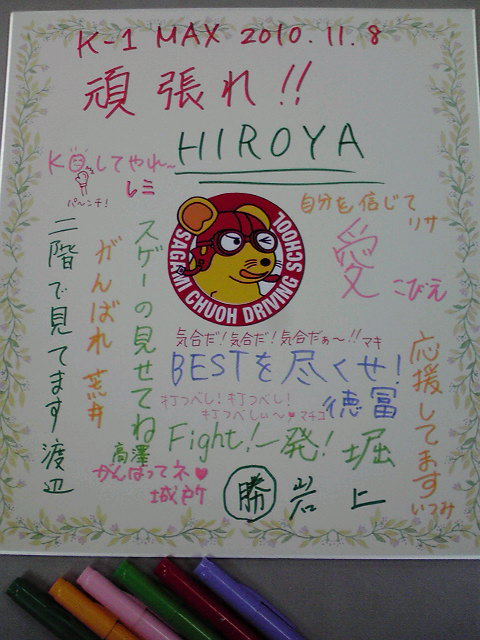 K-1 MAX 2010.11.8
頑張れ!!
HIROYA
KOしてやれ〜
パ〜ンチ!
レミ
自分を信じて
リサ
SAGAMI CHUOH DRIVING SCHOOL
愛
こびえ
二階で見てます 渡辺
がんばれ 荒井
スゲーの見せてね
高澤
気合だ!気合だ!気合だぁ〜!! マキ
BESTを尽くせ!
徳冨
打つべし!打つべし!
打つべしぃ〜♥マチコ
応援してます
いつみ
Fight!一発! 堀
がんばってネ♥
城戸所
勝 岩上